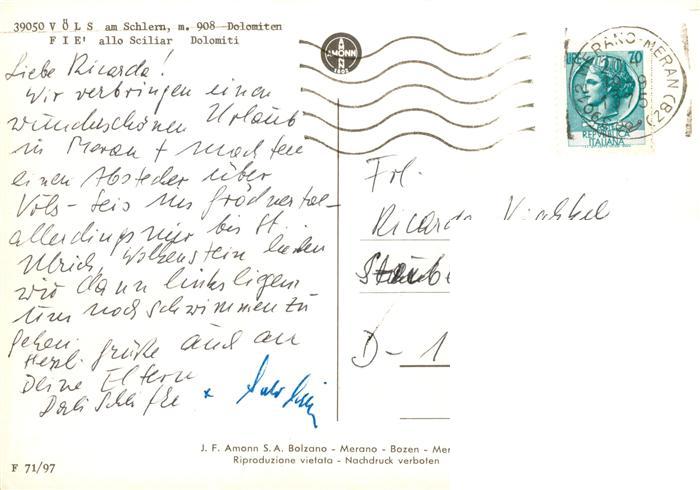 39050 VÖLS am Schlern, m. 908 Dolomiten
FIE' allo Sciliar Dolomiti
Liebe Ricarda!
Wir verbringen einen
wunderschönen Urlaub
in Meran + machten
einen Abstecher über
Völs - Seis ins Grödnertal -
allerdings nur bis St.
Ulrich, Wolkenstein ließen
wir dann links liegen
um noch schwimmen zu
gehen.
Herzl. Grüße auch an
Deine Eltern
AMONN
Frl.
Ricarda
D-1
70
REPUBBLICA
ITALIANA
MERANO-MERAN
J. F. Amonn S.A. Bolzano - Merano - Bozen - Mer
Riproduzione vietata - Nachdruck verboten
F 71/97